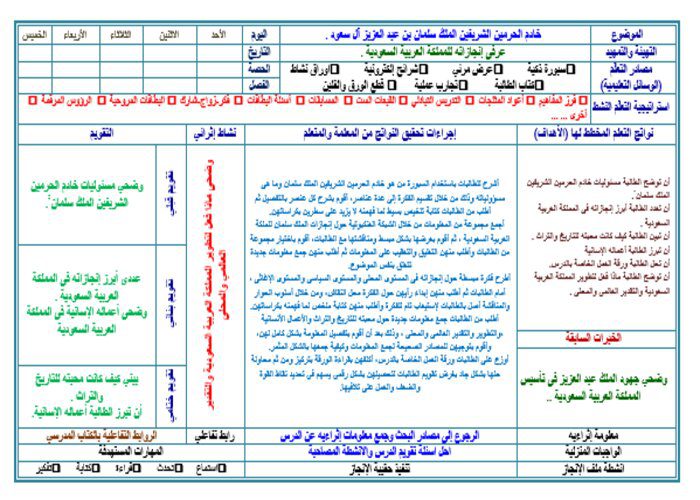 الموضوع
خادم الحرمين الشريفين الملك سلمان بن عبد العزيز آل سعود .
اليوم
الأحد
الاثنين
الثلاثاء
الأربعاء
الخميس
التهيئة والتمهيد
عرفي إنجازاته للمملكة العربية السعودية .
التاريخ
مصادر التعلم
(الوسائل التعليمية)
سبورة ذكية
عرض مرئي
شرائح إلكترونية
أوراق نشاط
الحصة
كتاب الطالبة
تجارب عملية
قطع الورق والفلين
الفصل
استراتيجية التعلم النشط
فرز المفاهيم
أعواد المثلجات
التدريس التبادلي
القبعات الست
المسابقات
أسئلة البطاقات
فكر،زواج،شارك
البطاقات المروحية
الرؤوس المرقمة
أخرى ... ...
نواتج التعلم المخطط لها (الأهداف)
إجراءات تحقيق النواتج من المعلمة والمتعلم
نشاط إثرائي
التقويم
أن توضح الطالبة مسئوليات خادم الحرمين الشريفين
الملك سلمان.
أن تعدد الطالبة أبرز إنجازاته في المملكة العربية
السعودية .
أن تبين الطالبة كيف كانت محبته للتاريخ والتراث .
أن تبرز الطالبة أعماله الإنسانية
أن تحل الطالبة ورقة العمل الخاصة بالدرس.
أن توضح الطالبة ماذا فعل لتطوير المملكة العربية
السعودية والتقدير العالمي والمحلي .
الخبرات السابقة
وضحي جهود الملك عبد العزيز في تأسيس
المملكة العربية السعودية ..
أشرح للطالبات باستخدام السبورة من هو خادم الحرمين الشريفين الملك سلمان وما هي
مسؤولياته وذلك من خلال تقسيم الفكرة إلى عدة عناصر، أقوم بشرح كل عنصر بالتفصيل ثم
أطلب من الطالبات كتابة تلخيص بسيط لما فهمته لا يزيد على سطرين بكراساتهن.
أجمع مجموعة من المعلومات من خلال الشبكة العنكبوتية حول إنجازات الملك سلمان للملكة
العربية السعودية ، ثم أقوم بعرضها بشكل مبسط ومناقشتها مع الطالبات، أقوم باختيار مجموعة
من الطالبات وأطلب منهن التعليق والتعقيب على المعلومات ثم أطلب منهن جمع معلومات جديدة
تتعلق بنفس الموضوع.
أطرح فكرة مبسطة حول إنجازاته في المستوى المحلي والمستوى السياسي والمستوى الإغاثي ،
أمام الطالبات ثم أطلب منهن إبداء رأيهن حول الفكرة محل النقاش، ومن خلال أسلوب الحوار
والمناقشة أصل بالطالبات لاستيعاب عام للفكرة وأطلب منهن كتابة ملخص لما فهمته بكراساتهن.
أطلب من الطالبات جمع معلومات جديدة حول محبته للتاريخ والتراث والأعمال الأنسانية
،والتطوير والتقدير العالمي والمحلي ، وذلك بعد أن أقوم بتفصيل المعلومة بشكل كامل لهن،
وأقوم بتوجيههن للمصادر الصحيحة لجمع المعلومات وكيفية جمعها بالشكل المثمر.
أوزع على الطالبات ورقة العمل الخاصة بالدرس، أكلفهن بقراءة الورقة بتركيز ومن ثم محاولة
حلها بشكل جاد بغرض تقويم الطالبات لتحصيلهن بشكل رقمي يسهم في تحديد نقاط القوة
والضعف والعمل على تلافيها.
وضحي ماذا فعل لتطوير المملكة العربية السعودية والتقدير
العالمي والمحلي
تقويم قبلي
وضحي مسئوليات خادم الحرمين
الشريفين الملك سلمان.
تقويم بنائي
عددي أبرز إنجازاته في المملكة
العربية السعودية .
وضحي أعماله الإنسانية في المملكة
العربية السعودية
تقويم ختامي
بيني كيف كانت محبته للتاريخ
والتراث .
أن تبرز الطالبة أعماله الإنسانية.
معلومة إثرائية
الرجوع إلى مصادر البحث وجمع معلومات إثرائيه عن الدرس
رابط تفاعلي
الروابط التفاعلية بالكتاب المدرسي
الواجبات المنزلية
احل اسئلة تقويم الدرس والانشطة المصاحبة
المهارات المستهدفة
أنشطة ملف الإنجاز
تنفيذ حقيبة الإنجاز
استماع
تحدث
قراءة
كتابة
تفكير